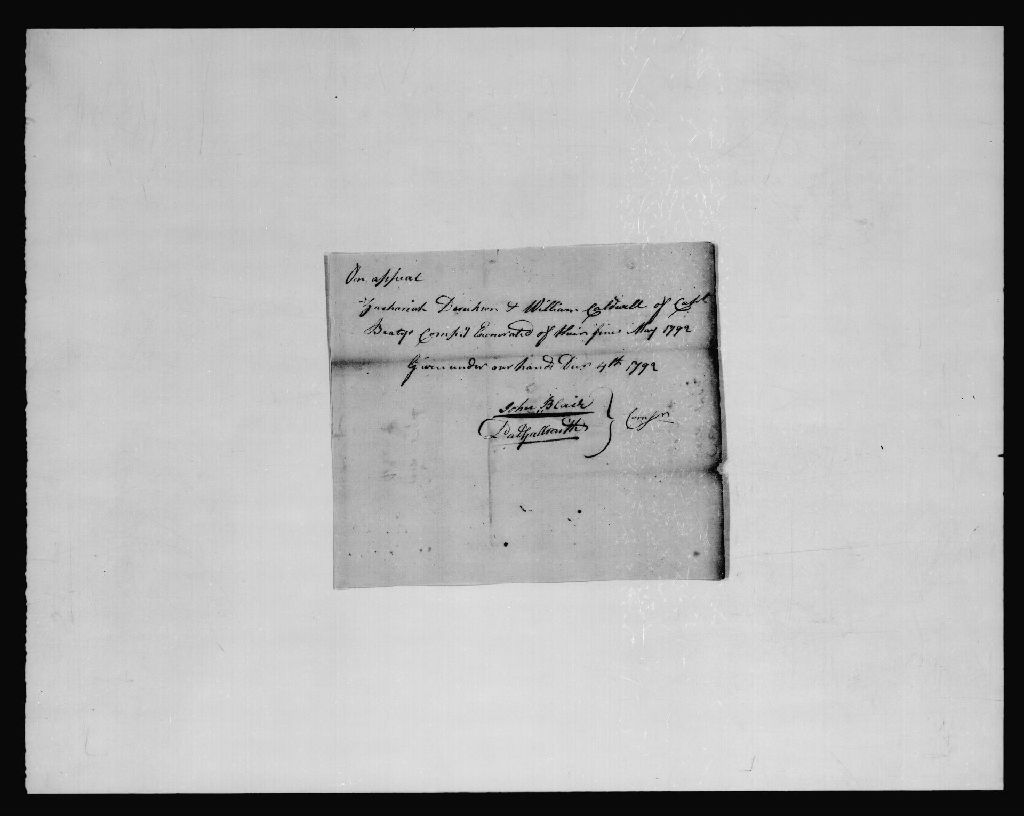 On appeal
Zachariah & William Caldwell of Capt
Beatys Comp'y Exonorated of their fines May 1792
Given under our hands Decr 4th 1792
John Blair
Comssrs